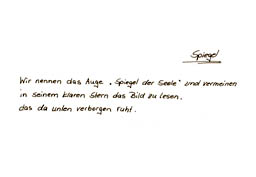 Spiegel
Wir nennen das Auge „Spiegel der Seele" und vermeinen
in seinem klaren Stern das Bild zu lesen,
das da unten verborgen ruht.